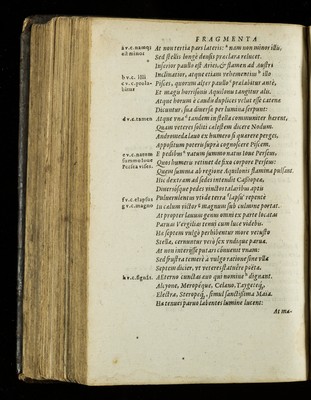 FRAGMENTA
a v.c. numqs
est minor
At non tertia pars lateris: ᵃ nam non minor illis,
Sed stellis longè densis præclara relucet.
Inferior paullo est Aries, & flamen ad Austri
b v.c. illi
Inclinatior, atque etiam vehementius ᵇ illo
c v.c. prolabitur
Pisces, quorum alter paullo ᶜ prælabitur antè,
Et magis horrisonis Aquilonis tangitur alis.
Atque horum è caudis duplices velut esse catena
Dicuntur, sua diversæ per lumina serpunt:
d v.c. tamen
Atque vna ᵈ tandem in stella communiter hærent,
Quam veteres soliti cælestem dicere Nodum.
Andromedæ lævo ex humero si quærere perges,
Appositum poteris suprà cognoscere Piscem.
E pedibus ᵉ natum summo natus Ioue Perseus,
Quos humeris retinet defixo corpore Perseus:
Quem summa ab regione Aquilonis flamina pulsant.
Hic dextram ad sedes intendit Cassiopeæ,
Diversósque pedes vinctos talaribus aptis
f v.c. elapsus
Pulverulentus vti de terra ᶠ lapsu' repentè
g v.c. magno
In cælum victor ᵍ magnum sub culmine portat.
At propter læuum genus omni ex parte locatas
Paruas Vergilias tenui cum luce videbis.
Hæ septem vulgò perhibentur more vetusto
Stellæ, cernuntur verò sex vndique paruæ.
At non interiisse putari conuenit vnam:
Sed frustra temerè à vulgo ratione sine vlla
Septem dicier, vt veteres statuere poëtæ.
h v.c. signat.
Æterno cunctas æuo qui nomine ʰ dignant.
Alcyone, Meropéque, Celæno, Taygetéq́;,
Electra, Steropéq́;, simul sanctissima Maia.
Hæ tenues paruo labentes lumine lucent:
At ma-